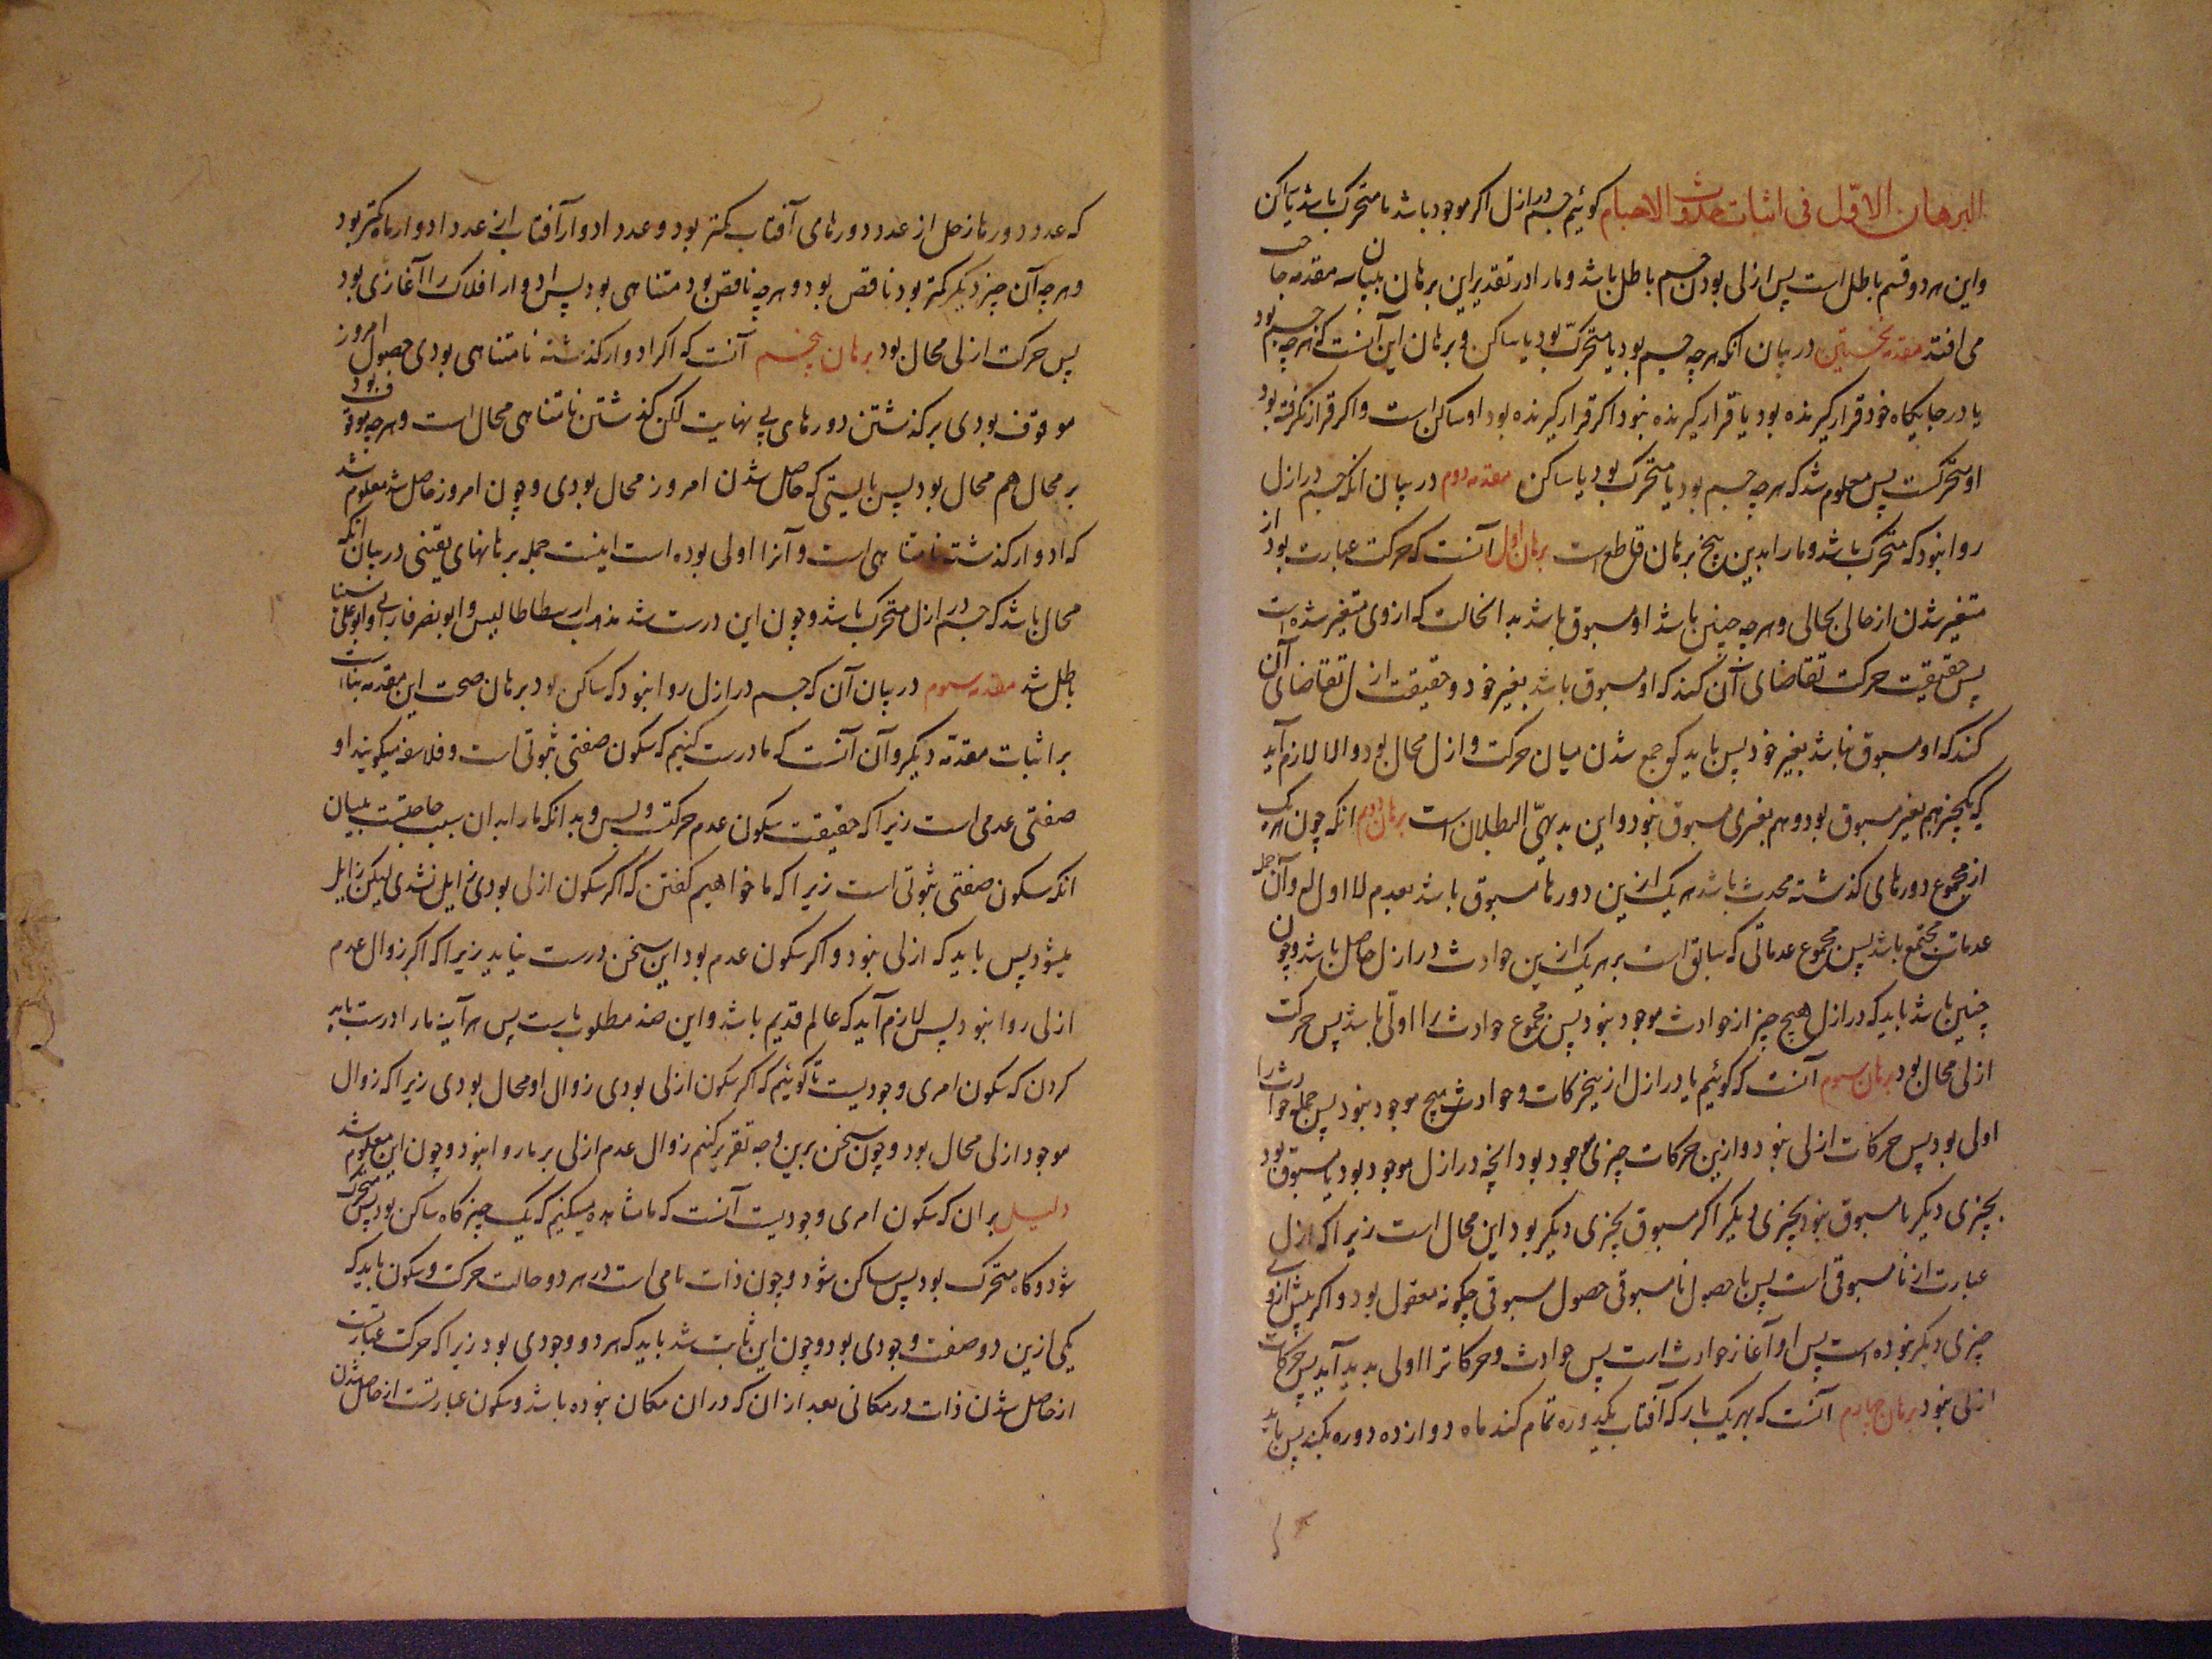 البرهان الاوّل فی اثبات حدوث الاجسام کوئیم جسم در ازل اکر موجود باشد یا متحرک باشد یا ساکن
و این هر دو قسم باطل است پس ازلی بودن جسم باطل باشد و ما را در تقدیر این برهان ببیان سه مقدمه حاجت
می افتد مقدمه نخستین در بیان انکه هر چه جسم بود یا متحرک بود یا ساکن و برهان این آنست که هر چه جسم بود
یا در جایکاه خود قرار کیرنده بود یا قرار کیرنده نبود اکر قرار کیرنده بود او ساکن است و اکر قرار نکرفته بود
او متحرکست پس معلوم شد که هر چه جسم بود یا متحرک بود یا ساکن مقدمه دوم در بیان انکه جسم در ازل
روا نبود که متحرک باشد و ما را بدین پنج برهان قاطع است برهان اول آنست که حرکت عبارت بود از
متغیر شدن از حالی بحالی و هر چه چنین باشد او مسبوق باشد بدانحالت که از وی متغیر شده است
پس حقیقت حرکت تقاضای آن کند که او مسبوق باشد بغیر خود و حقیقت ازل تقاضای آن
کند که او مسبوق نباشد بغیر خود پس باید که جمع شدن میان حرکت و ازل محال بود و الا لازم آید
که یکچیز هم بغیر مسبوق بود و هم بغیری مسبوق نبود و این بدیهیّ البطلان است برهان دوم انکه چون هر یک
از مجموع دورهای کذشته محدث باشد هر یک ازین دورها مسبوق باشد بعدم لا اول له و آن جمله
عدمات مجتمع باشد پس مجموع عدماتی که سابق است بر هر یک ازین حوادث در ازل حاصل باشد و چون
چنین باشد باید که در ازل هیچ چیز از حوادث موجود نبود پس مجموع حوادث را اوّلی باشد پس حرکت
ازلی محال بود برهان سوم آنست که کوئیم یا در ازل ازین حرکات و حوادث هیچ موجود نبود پس جمله حوادث را
اولی بود پس حرکات ازلی نبود و ازین حرکات چیزی موجود بود انچه در ازل موجود بود یا مسبوق بود
بچیزی دیکر یا مسبوق نبود بچیزی دیکر اکر مسبوق بچیزی دیکر بود این محال است زیرا که ازل
عبارت از نا مسبوقی است پس با حصول نا مسبوقی حصول مسبوقی چکونه معقول بود و اکر پیش از وی
چیزی دیکر نبوده است پس او آغاز حوادث است پس حوادث و حرکات را اولی پدید آید پس حرکات
ازلی نبود برهان چهارم آنست که بهر یک بار که آفتاب یکدوره تمام کند ماه دوازده دوره بکند پس باید
که عدد دورهاء زحل از عدد دورهای آفتاب کمتر بود و عدد ادوار آفتاب از عدد ادوار ماه کمتر بود
و هر چه آن چیز دیکر کمتر بود ناقص بود و هر چه ناقص بود متناهی بود پس ادوار افلاک را آغازی بود
پس حرکت ازلی محال بود برهان پنجم آنست که اکر ادوار کذشته نامتناهی بودی حصول امروز
موقوف بودی بر کذشتن دورهای بی نهایت لکن کذشتن نامتناهی محال است و هر چه موقوف بود
بر محال هم محال بود پس بایستی که حاصل شدن امروز محال بودی و چون امروز حاصل شد معلوم شد
که ادوار کذشته متناهی است و آنرا اولی بوده است اینست جمله برهانهای یقینی در بیان انکه
محال باشد که جسم در ازل متحرک باشد و چون این درست شد مذهب ارسطاطالیس و ابو نصر فارابی و ابو علی سینا
باطل شد مقدمه سوم در بیان آن که جسم در ازل روا نبود که ساکن بود برهان صحت این مقدمه بنا است
بر اثبات مقدمّه دیکر و آن آنست که ما درست کنیم که سکون صفتی ثبوتی است و فلاسفه میکویند او
صفتی عدمی است زیرا که حقیقت سکون عدم حرکت و بس و بدانکه ما را بدان سبب حاجتست ببیان
انکه سکون صفتی ثبوتی است زیرا که ما خواهیم کفتن که اکر سکون ازلی بودی زایل نشدی لیکن زایل
میشود پس باید که ازلی نبود و اکر سکون عدم بود این سخن درست نیاید زیرا که اکر زوال عدم
ازلی روا نبود پس لازم آید که عالم قدیم باشد و این ضد مطلوب ماست پس هر آینه ما را درست باید
کردن که سکون امری وجودیست تا کوئیم که اکر سکون ازلی بودی زوال او محال بودی زیرا که زوال
موجود ازلی محال بود و چون سخن برین وجه تقریر کنیم زوال عدم ازلی بر ما روا نبود و چون این معلوم شد
دلیل بر ان که سکون امری وجودیست آنست که ما مشاهده میکنیم که یک چیز کاه ساکن بود پس متحرک
شود و کاه متحرک بود پس ساکن شود و چون ذات باقی است در هر دو حالت حرکت و سکون باید که
یکی ازین دو صفت وجودی بود و چون این ثابت شد باید که هر دو وجودی بود زیرا که حرکت عبارتست
از حاصل شدن ذات در مکانی بعد از ان که در ان مکان نبوده باشد و سکون عبارتست از حاصل شدن